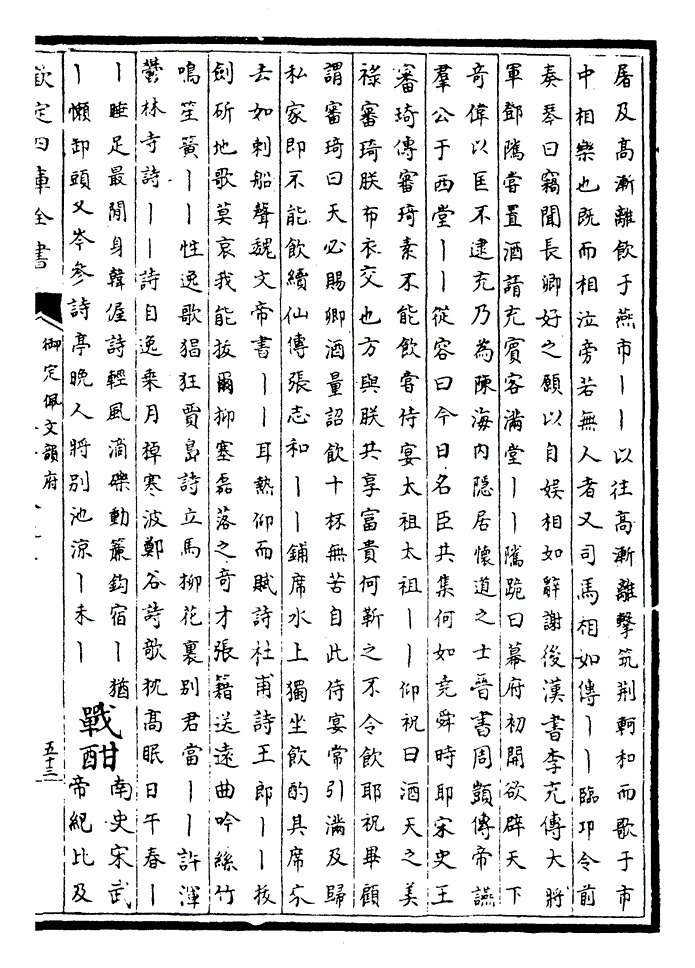 屠及高漸離飲于燕市丨丨以往高漸離擊筑荆軻和而歌于市
中相樂也既而相泣旁若無人者又司馬相如傳丨丨臨邛令前
奏琴曰竊聞長卿好之願以自娛相如辭謝後漢書李充傳大將
軍鄧隲嘗置酒請充賓客滿堂丨丨隲跪曰幕府初開欲辟天下
奇偉以匡不逮充乃為陳海內隱居懷道之士晉書周顗傳帝讌
羣公于西堂丨丨從容曰今日名臣共集何如堯舜時耶宋史王
審琦傳審琦素不能飲嘗侍宴太祖太祖丨丨仰祝曰酒天之美
祿審琦朕布衣交也方與朕共享富貴何靳之不令飲耶祝畢顧
謂審琦曰天必賜卿酒量詔飲十杯無苦自此侍宴常引滿及歸
私家即不能飲續仙傳張志和丨丨鋪席水上獨坐飲酌其席來
去如刺船聲魏文帝書丨丨耳熱仰而賦詩杜甫詩王郎丨丨拔
劍斫地歌莫哀我能拔爾抑塞磊落之奇才張籍送遠曲吟絲竹
鳴笙簧丨丨性逸歌猖狂賈島詩立馬柳花裏別君當丨丨許渾
鬱林寺詩丨丨詩自逸乗月棹寒波鄭谷詩歌枕高眠日午春丨
丨睡足最閒身韓偓詩輕風滴礫動簾鈎宿丨猶
丨懶卸頭又岑參詩亭晚人將別池涼丨未丨
戰酣
南史宋武
帝紀比及
欽定四庫全書
御定佩文韻府
五十三